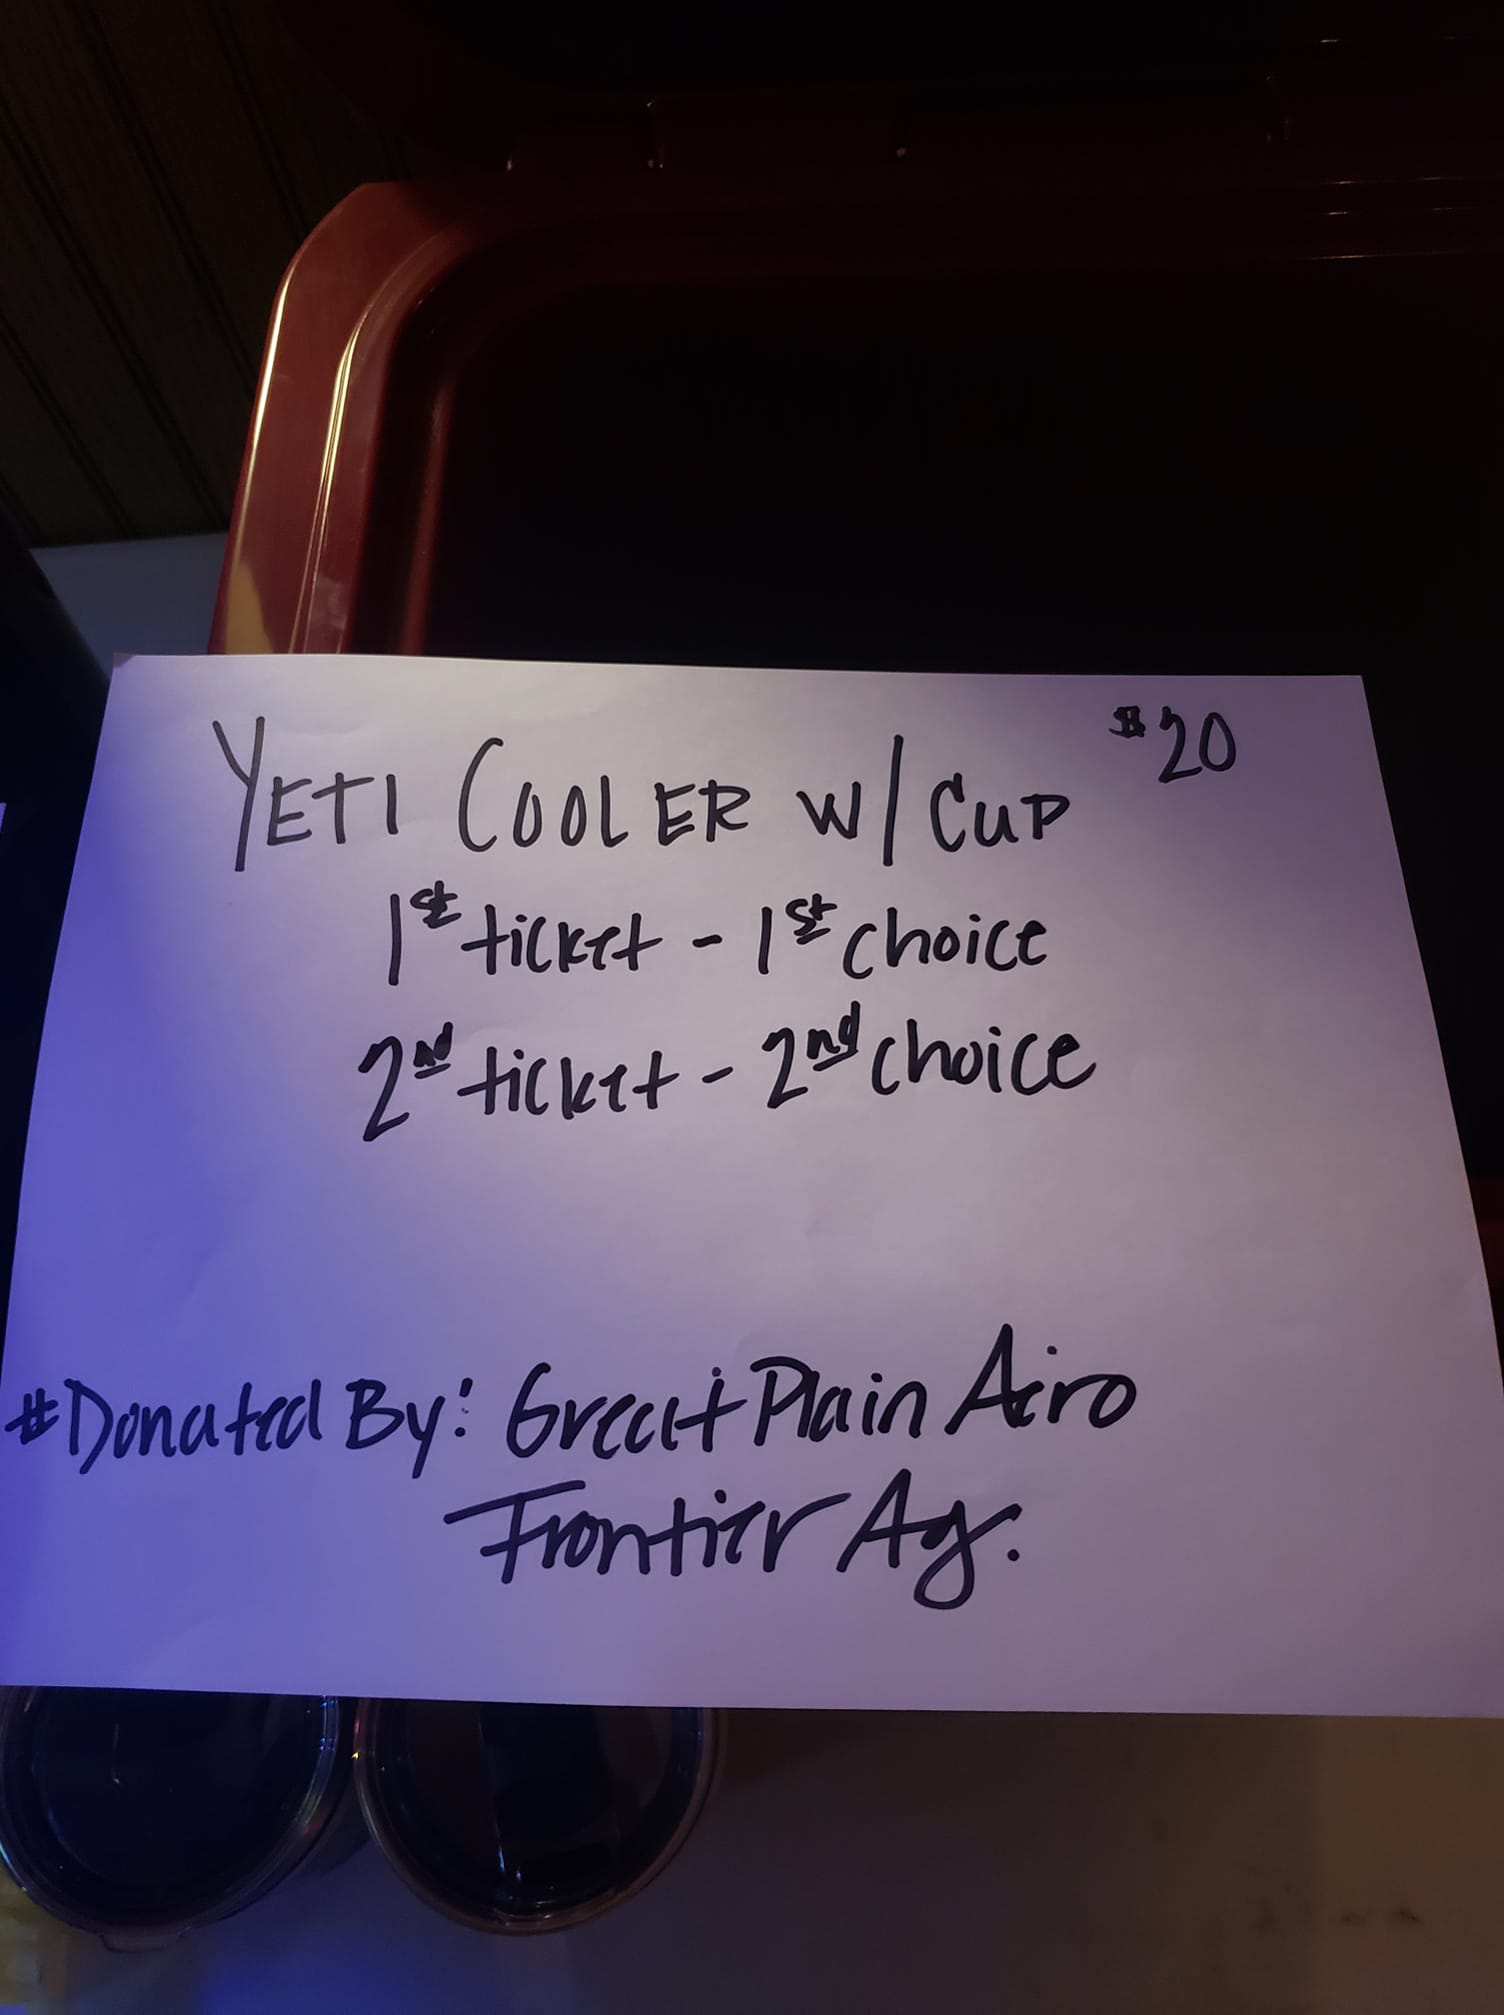 $20
YETI COOLER W/ CUP
1st ticket - 1st choice
2nd ticket - 2nd choice
#Donated By: Great Plain Aero
Frontier Ag.